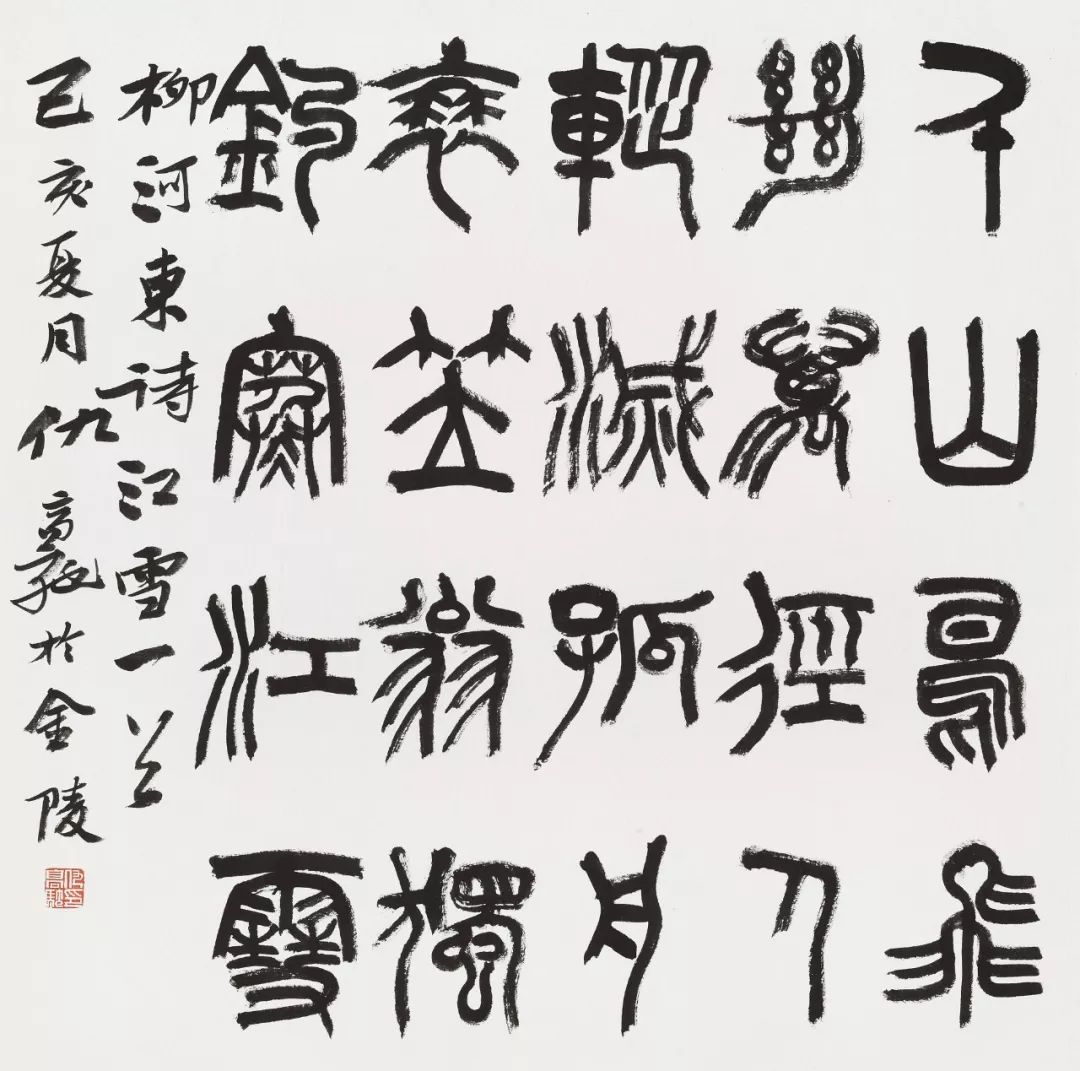 千山鳥飛
絕萬徑人
蹤滅孤舟
蓑笠翁獨
釣寒江雪
柳河東詩江雪一首
己亥夏月仇高馳於金陵
仇印高馳